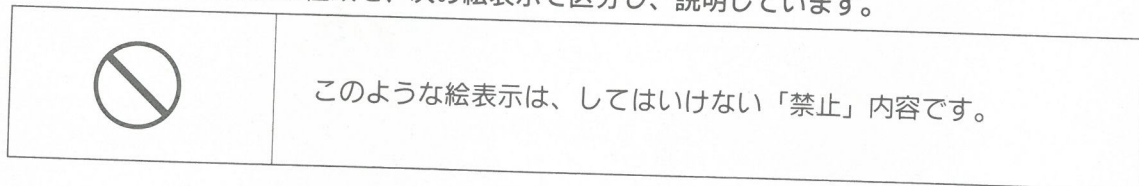 次の絵表示で区分し、説明しています。
このような絵表示は、してはいけない「禁止」内容です。